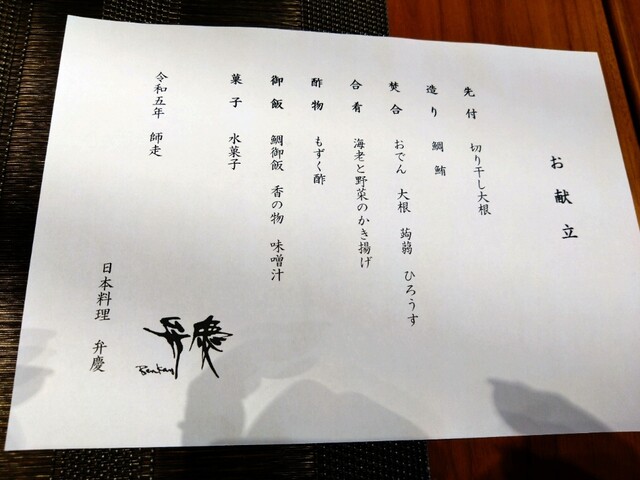 お献立
先付 切り干し大根
造り 鯛 鮪
焚合 おでん 大根 蒟蒻 ひろうす
合肴 海老と野菜のかき揚げ
酢物 もずく酢
御飯 鯛御飯 香の物 味噌汁
菓子 水菓子
令和五年 師走
日本料理 弁慶
弁慶
Benkay